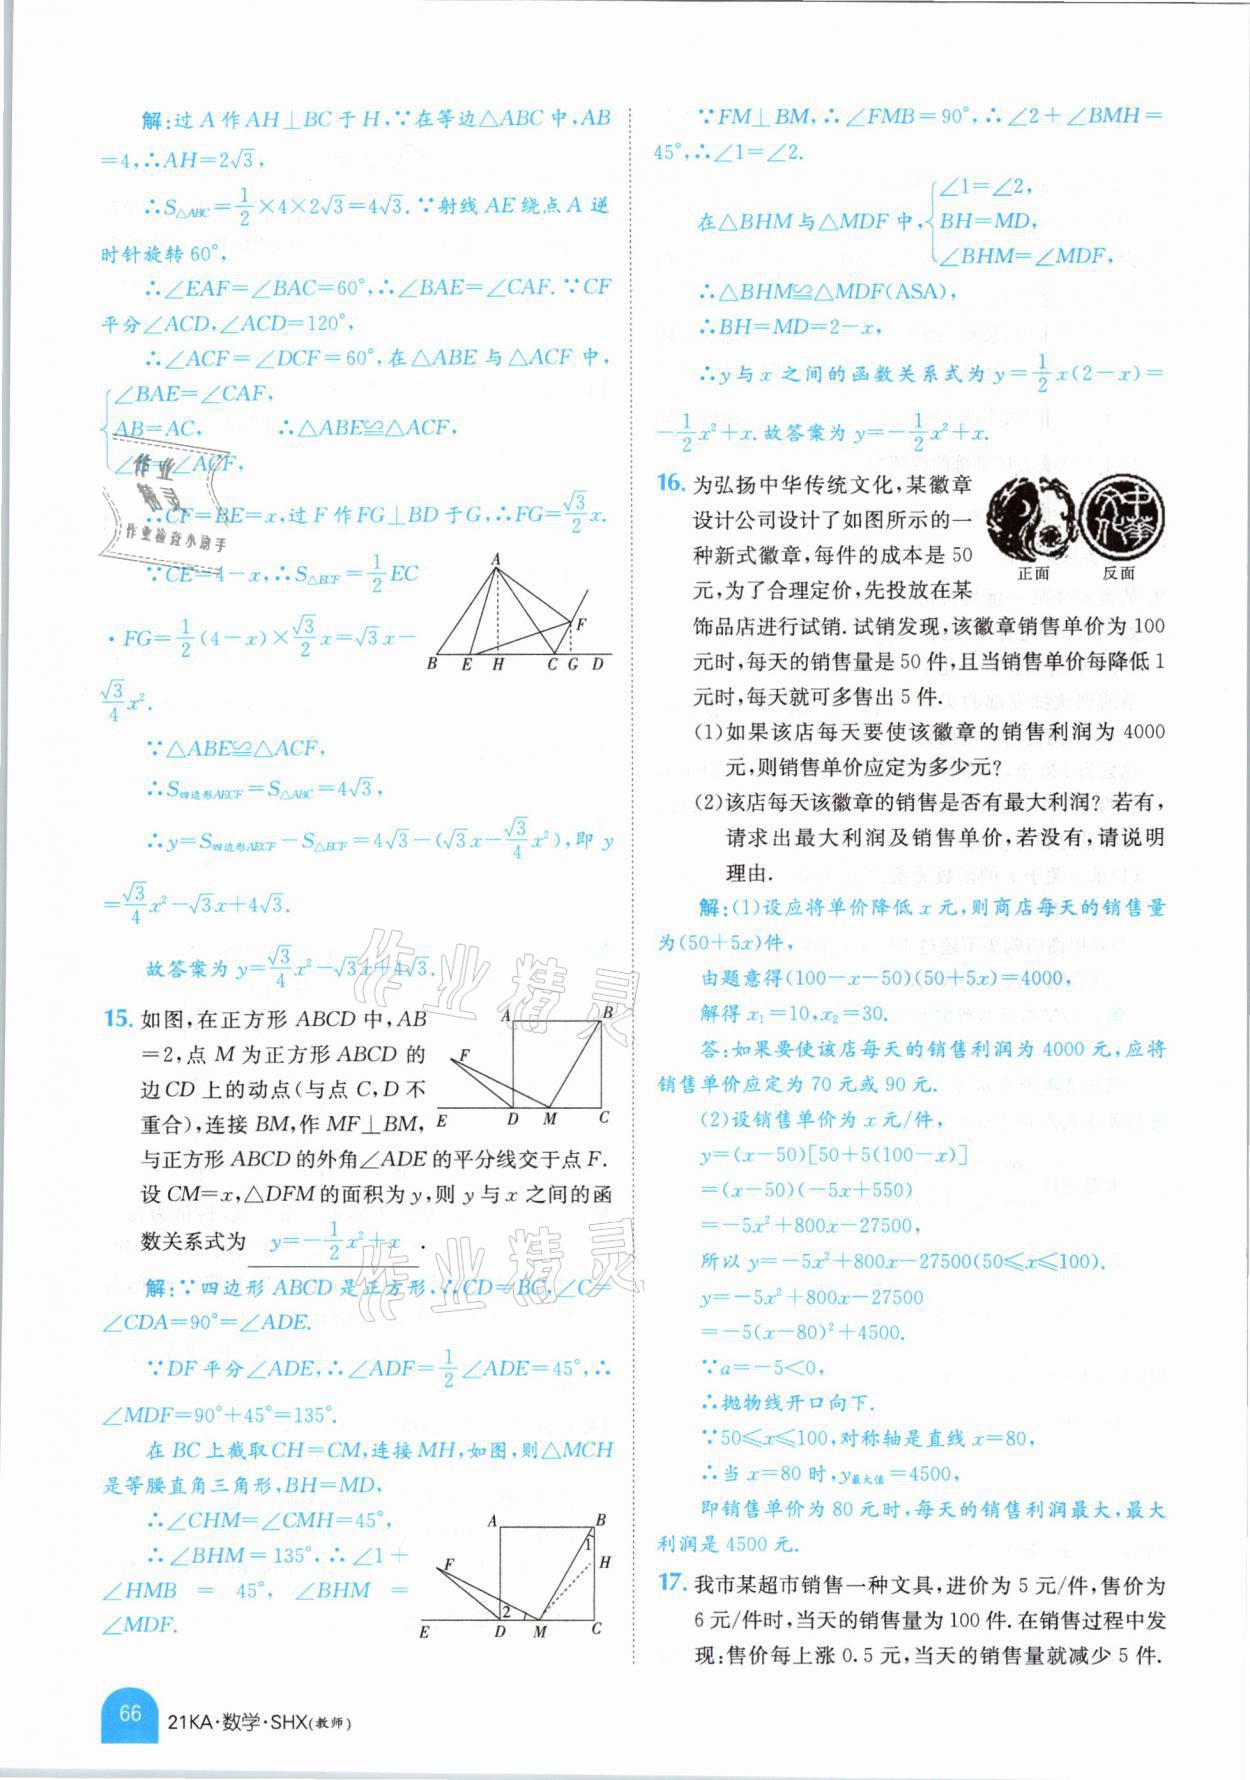 解:过A作AH⊥BC于H,∵在等边△ABC中,AB
=4,∴AH=2√3,
∴S△ABC=1/2×4×2√3=4√3.∵射线AE绕点A逆
时针旋转60°,
∴∠EAF=∠BAC=60°,∴∠BAE=∠CAF.∵CF
平分∠ACD,∠ACD=120°,
∴∠ACF=∠DCF=60°,在△ABE与△ACF中,
∠BAE=∠CAF,
AB=AC, ∴△ABE≌△ACF,
∠B=∠ACF,
∴CF=BE=x,过F作FG⊥BD于G,∴FG=√3/2 x.
∵CE=4-x,∴S△ECF=1/2 EC
·FG=1/2(4-x)×√3/2 x=√3x-
√3/4 x².
A
F
B E H C G D
∵△ABE≌△ACF,
∴S四边形AECF=S△ABC=4√3,
∴y=S四边形AECF-S△ECF=4√3-(√3x-√3/4 x²),即y
=√3/4 x²-√3x+4√3.
故答案为y=√3/4 x²-√3x+4√3.
15.如图,在正方形ABCD中,AB
=2,点M为正方形ABCD的
边CD上的动点(与点C,D不
重合),连接BM,作MF⊥BM,
与正方形ABCD的外角∠ADE的平分线交于点F.
设CM=x,△DFM的面积为y,则y与x之间的函
数关系式为 y=-1/2 x²+x .
A B
F
E D M C
解:∵四边形ABCD是正方形,∴CD=BC,∠C=
∠CDA=90°=∠ADE.
∵DF平分∠ADE,∴∠ADF=1/2∠ADE=45°,∴
∠MDF=90°+45°=135°.
在BC上截取CH=CM,连接MH,如图,则△MCH
是等腰直角三角形,BH=MD,
∴∠CHM=∠CMH=45°,
∴∠BHM=135°,∴∠1+
∠HMB=45°,∠BHM=
∠MDF.
A B
1
F H
2
E D M C
∵FM⊥BM,∴∠FMB=90°,∴∠2+∠BMH=
45°,∴∠1=∠2.
∠1=∠2,
在△BHM与△MDF中,BH=MD,
∠BHM=∠MDF,
∴△BHM≌△MDF(ASA),
∴BH=MD=2-x,
∴y与x之间的函数关系式为y=1/2 x(2-x)=
-1/2 x²+x.故答案为y=-1/2 x²+x.
16.为弘扬中华传统文化,某徽章
设计公司设计了如图所示的一
种新式徽章,每件的成本是50
元,为了合理定价,先投放在某
饰品店进行试销.试销发现,该徽章销售单价为100
元时,每天的销售量是50件,且当销售单价每降低1
元时,每天就可多售出5件.
中华文化
正面 反面
(1)如果该店每天要使该徽章的销售利润为4000
元,则销售单价应定为多少元?
(2)该店每天该徽章的销售是否有最大利润?若有,
请求出最大利润及销售单价,若没有,请说明
理由.
解:(1)设应将单价降低x元,则商店每天的销售量
为(50+5x)件,
由题意得(100-x-50)(50+5x)=4000,
解得x₁=10,x₂=30.
答:如果要使该店每天的销售利润为4000元,应将
销售单价应定为70元或90元.
(2)设销售单价为x元/件,
y=(x-50)[50+5(100-x)]
=(x-50)(-5x+550)
=-5x²+800x-27500,
所以y=-5x²+800x-27500(50≤x≤100).
y=-5x²+800x-27500
=-5(x-80)²+4500.
∵a=-5<0,
∴抛物线开口向下.
∵50≤x≤100,对称轴是直线x=80,
∴当x=80时,y最大值=4500,
即销售单价为80元时,每天的销售利润最大,最大
利润是4500元.
17.我市某超市销售一种文具,进价为5元/件,售价为
6元/件时,当天的销售量为100件.在销售过程中发
现:售价每上涨0.5元,当天的销售量就减少5件.
66 21KA·数学·SHX(教师)
作业
精灵
作业检查小助手
作业精灵
作业精灵